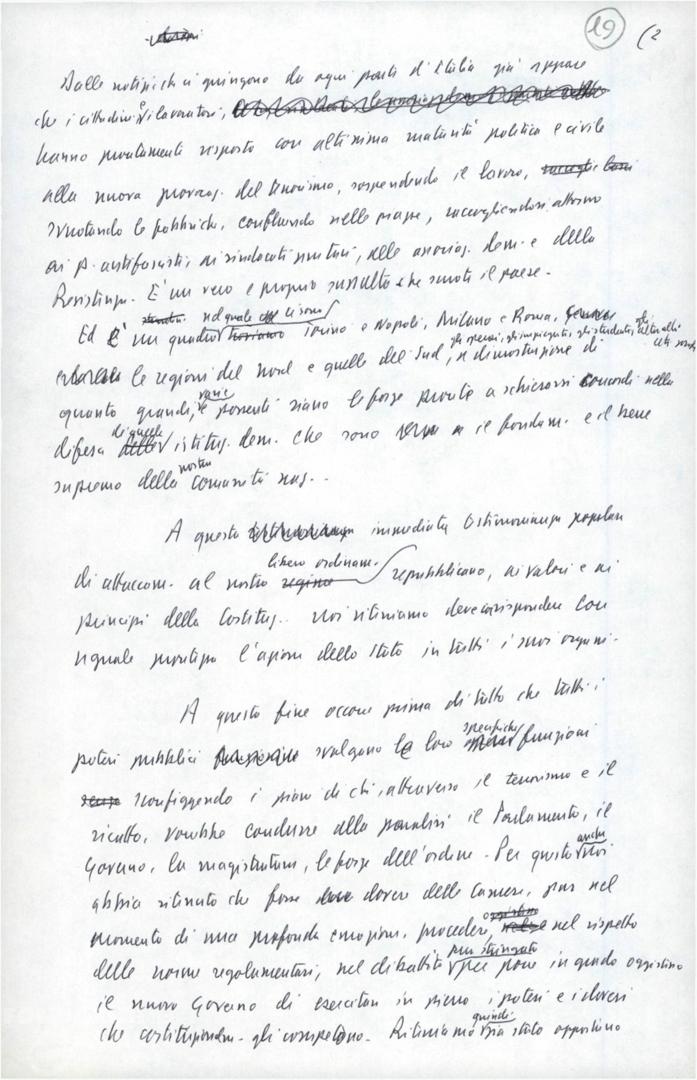 19 (2
Dalle notizie che ci giungono da ogni parte d'Italia già appare
che i cittadini e i lavoratori,
hanno prontamente risposto con altissima maturità politica e civile
alla nuova provocaz. del terrorismo, sospendendo il lavoro,
svuotando le fabbriche, confluendo nelle piazze, raccogliendosi attorno
ai p. antifascisti, ai sindacati unitari, alle associaz. dem. e della
Resistenza. È un vero e proprio sussulto che scuote il paese.
Ed è un quadro nel quale ci sono Torino e Napoli, Milano e Roma,
le regioni del Nord e quelle del Sud, gli operai, gli impiegati, gli studenti, gli altri ceti a dimostrazione di
quanto grandi, varie e possenti siano le forze pronte a schierarsi concordi nella
difesa di quelle istituz. dem. che sono il fondam. e il bene
supremo della nostra comunità naz..
A questa immediata testimonianza popolare
di attaccam. al nostro libero ordinam. repubblicano, ai valori e ai
principi della Costituz.. noi riteniamo deve corrispondere con
uguale prontezza l'azione dello Stato in tutti i suoi organi.
A questo fine occorre prima di tutto che tutti i
poteri pubblici svolgano le loro specifiche funzioni
sconfiggendo i piani di chi, attraverso il terrorismo e il
ricatto, vorrebbe condurre alla paralisi il Parlamento, il
Governo, la magistratura, le forze dell'ordine. Per questo anche noi
abbia ritenuto che fosse dovere delle Camere, pur nel
momento di una profonda emozione, procedere, nel rispetto
delle norme regolamentari, nel dibattito pur stringato per porre in grado oggi stesso
il nuovo Governo di esercitare in pieno i poteri e i doveri
che costituzionalm. gli competono. Riteniamo quindi sia stato opportuno